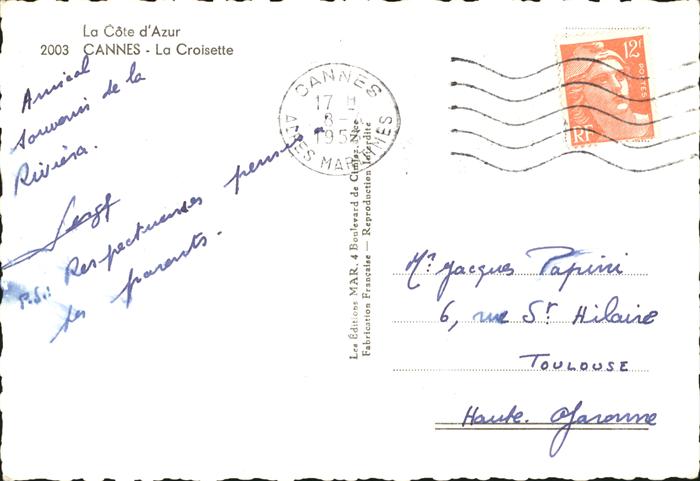 La Côte d'Azur
2003 CANNES - La Croisette
Amical
souvenir de la
Riviéra.
P.S.: Respectueuses pensées
des parents.
CANNES
17 H
8 -
195
ALPES MARITIMES
12F
POSTES
RF
Les Éditions MAR, 4 Boulevard de Cimiez, Nice
Fabrication Française — Reproduction Interdite
Mr. Jacques Papini
6, rue St Hilaire
TOULOUSE
Haute. Garonne